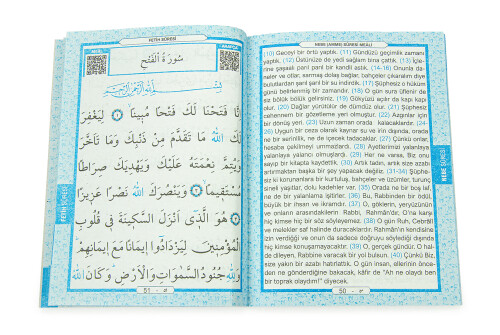 FETİH SÛRESİ
سُورَةُ الْفَتْحِ
بِسْمِ اللّٰهِ الرَّحْمٰنِ الرَّحِيمِ
اِنَّا فَتَحْنَا لَكَ فَتْحًا مُبِينًا ﴿١﴾ لِيَغْفِرَ
لَكَ اللّٰهُ مَا تَقَدَّمَ مِنْ ذَنْبِكَ وَمَا تَاَخَّرَ
وَيُتِمَّ نِعْمَتَهُ عَلَيْكَ وَيَهْدِيَكَ صِرَاطًا
مُسْتَقِيمًا ﴿٢﴾ وَيَنْصُرَكَ اللّٰهُ نَصْرًا عَزِيزًا
﴿٣﴾ هُوَ الَّذِي اَنْزَلَ السَّكِينَةَ فِي قُلُوبِ
الْمُؤْمِنِينَ لِيَزْدَادُوا اِيمَانًا مَعَ اِيمَانِهِمْ
وَلِلّٰهِ جُنُودُ السَّمٰوَاتِ وَالْاَرْضِ وَكَانَ اللّٰهُ
FETİH SÛRESİ
51
NEBE (AMME) SÛRESİ MEÂLİ
(10) Geceyi bir örtü yaptık. (11) Gündüzü geçimlik zamanı
yaptık. (12) Üstünüze de yedi sağlam bina çattık. (13) İçle-
rine şaşaalı parıl parıl bir kandil astık. (14-16) Onunla da-
neler ve otlar, sarmaş dolaş bağlar, bahçeler çıkaralım diye
bulutlardan şarıl şarıl bir su indirdik. (17) Şüphesiz o hüküm
günü belirlenmiş bir zamandır. (18) O gün sura üflenir de
siz bölük bölük gelirsiniz. (19) Gökyüzü açılır da kapı kapı
olur. (20) Dağlar yürütülür de dümdüz olur. (21) Şüphesiz
cehennem bir gözetleme yeri olmuştur. (22) Azgınlar için
bir dönüş yeri. (23) Uzun zaman orada kalacaklardır. (24-
26) Uygun bir ceza olarak kaynar su ve irin dışında, orada
ne bir serinlik, ne de içecek tadacaklar. (27) Çünkü onlar,
hesaba çekilmeyi ummazlardı. (28) Âyetlerimizi yalanlaya
yalanlaya yalancı olmuşlardı. (29) Her ne varsa, Biz onu
sayıp bir kitapta kaydettik. (30) Artık tadın, artık size azabı
artırmaktan başka bir şey yapacak değiliz. (31-34) Şüphe-
siz ki korunanlara bir kurtuluş, bahçeler ve üzümler, turunç
sineli yaşıtlar, dolu kadehler var. (35) Orada ne bir boş laf,
ne de bir yalanlama işitirler. (36) Bu, Rabbinden bir ödül,
büyük bir ihsan ve ikramdır. (37) O, göklerin, yeryüzünün
ve onların arasındakilerin Rabbi, Rahmân'dır. O'na karşı
hiç kimse hiç bir söz söyleyemez. (38) O gün Ruh, Cebrâîl
ve melekler saf halinde duracaklardır. Rahmân'ın kendisine
izin verdiği ve onun da sadece doğruyu söylediği dışında
hiç kimse konuşamayacaktır. (39) O, gerçek gündür. O hal-
de dileyen, Rabbine varacak bir yol bulsun. (40) Çünkü Biz,
size yakın bir azabı hatırlattık. O gün insan, ellerinin önce-
den ne gönderdiğine bakacak, kâfir de "Ah ne olaydı ben
bir toprak olaydım!" diyecek.
NEBE SÛRESİ
50